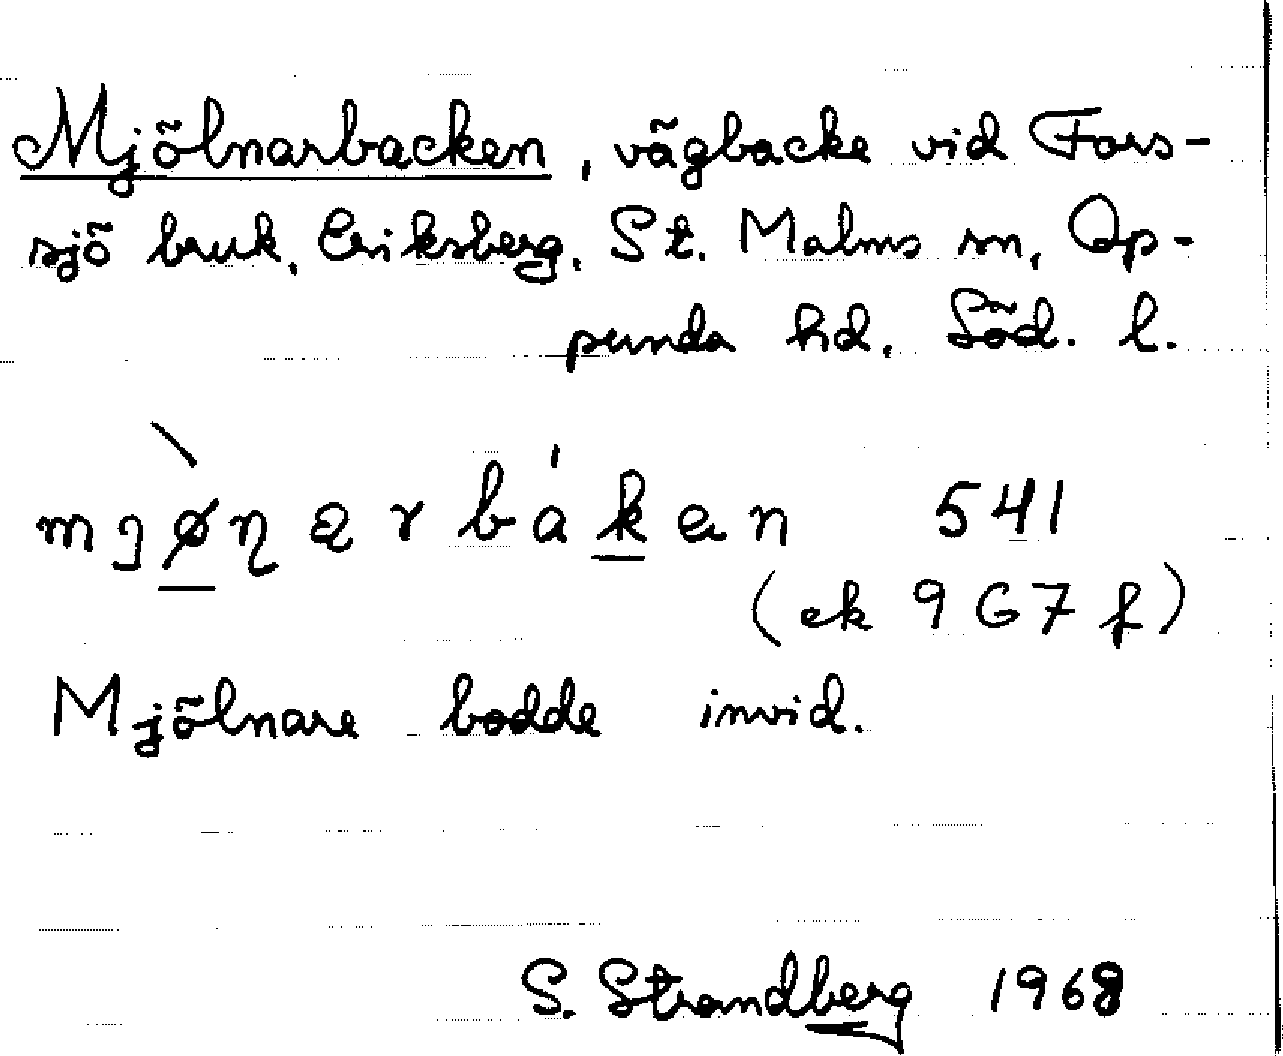 Mjölnarbacken, vägbacke vid Fors-
sjö bruk, Eriksberg, St. Malms sn, Op-
punda hd, Söd. l.
541
(ek 9 G 7 f)
Mjölnare bodde invid.
S. Strandberg 1968